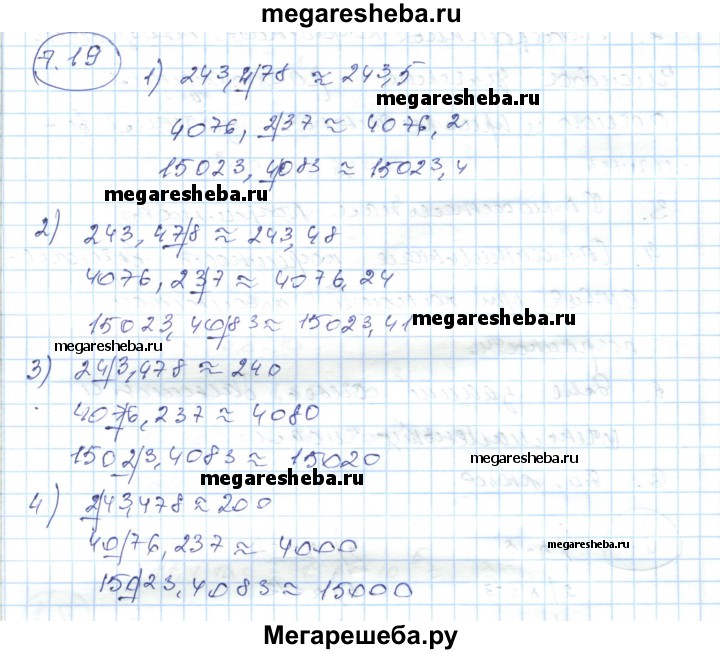 megaresheba.ru
7.19
1) 243,4/78 ≈ 243,5
megaresheba.ru
4076,2/37 ≈ 4076,2
15023,4083 ≈ 15023,4
megaresheba.ru
2) 243,47/8 ≈ 243,48
4076,23/7 ≈ 4076,24
15023,40/83 ≈ 15023,41
megaresheba.ru
megaresheba.ru
3) 24/3,478 ≈ 240
407/6,237 ≈ 4080
1502/3,4083 ≈ 15020
megaresheba.ru
4) 2/43,478 ≈ 200
40/76,237 ≈ 4000
megaresheba.ru
150/23,4083 ≈ 15000
megaresheba.ru
Мегарешеба.ру